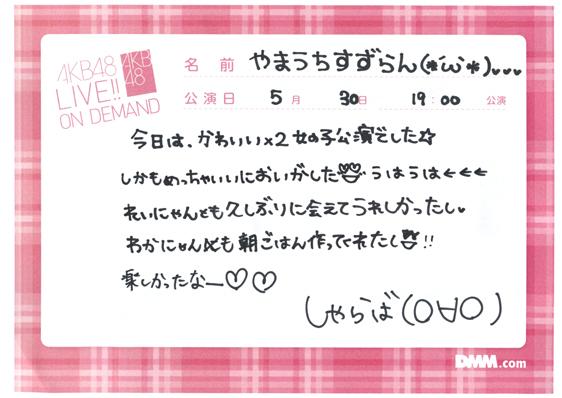 AKB48
LIVE!!
ON DEMAND
AKB
48
名 前 やまうちすずらん(*´ω`*)...
公演日 5月 30日 19:00 公演
今日は、かわいい×2女の子公演でした☆
しかもめっちゃいいにおいがした うはうは←←←
れいにゃんとも久しぶりに会えてうれしかったし♥
わかにゃんとも朝ごはん作ってくれたし!!
楽しかったなー♡♡
しゃらば(O∀O)
DMM.com